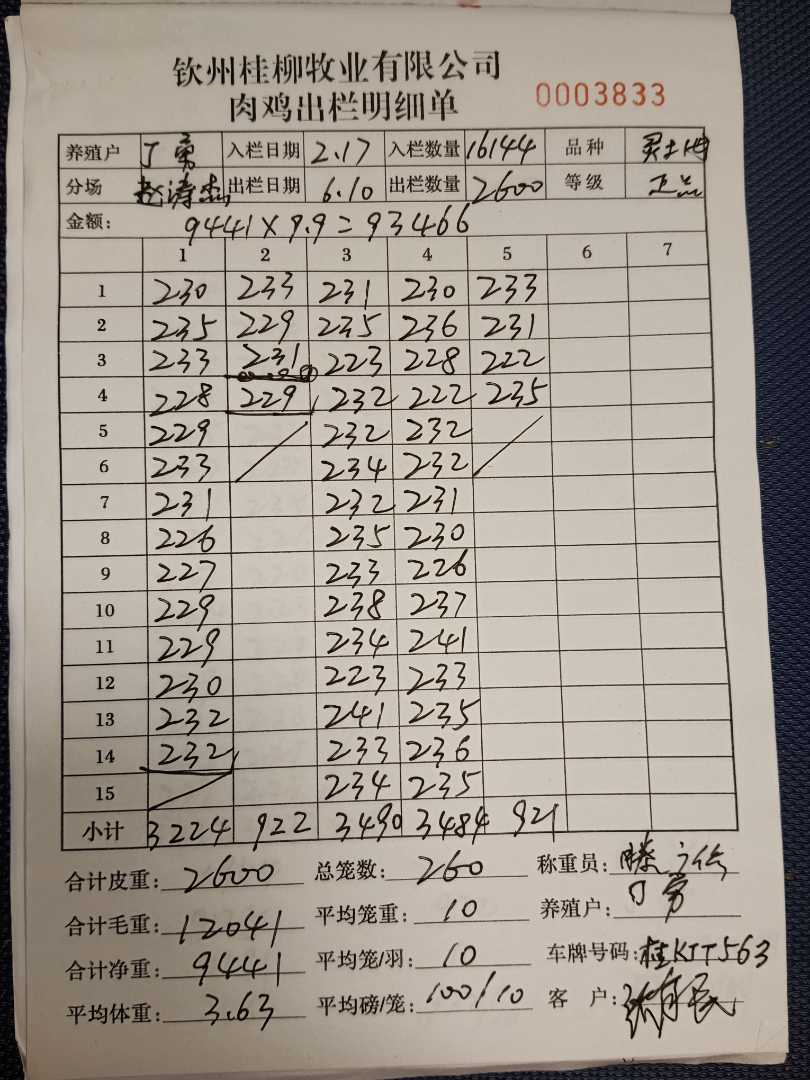 钦州桂柳牧业有限公司
肉鸡出栏明细单 0003833
养殖户 丁勇 入栏日期 2.17 入栏数量 16144 品种
分场 赵涛杰 出栏日期 6.10 出栏数量 2600 等级 正品
金额: 9441×9.9=93466
1 2 3 4 5 6 7
1 230 233 231 230 233
2 235 229 235 236 231
3 233 231 223 228 222
4 228 229 232 222 235
5 229 232 232
6 233 234 232
7 231 232 231
8 226 235 230
9 227 233 226
10 229 238 237
11 229 234 241
12 230 223 233
13 232 241 235
14 232 233 236
15 234 235
小计 3224 922 3490 3484 921
合计皮重: 2600 总笼数: 260 称重员:
合计毛重: 12041 平均笼重: 10 养殖户: 丁勇
合计净重: 9441 平均笼/羽: 10 车牌号码: 桂KJT563
平均体重: 3.63 平均磅/笼: 100/10 客户: